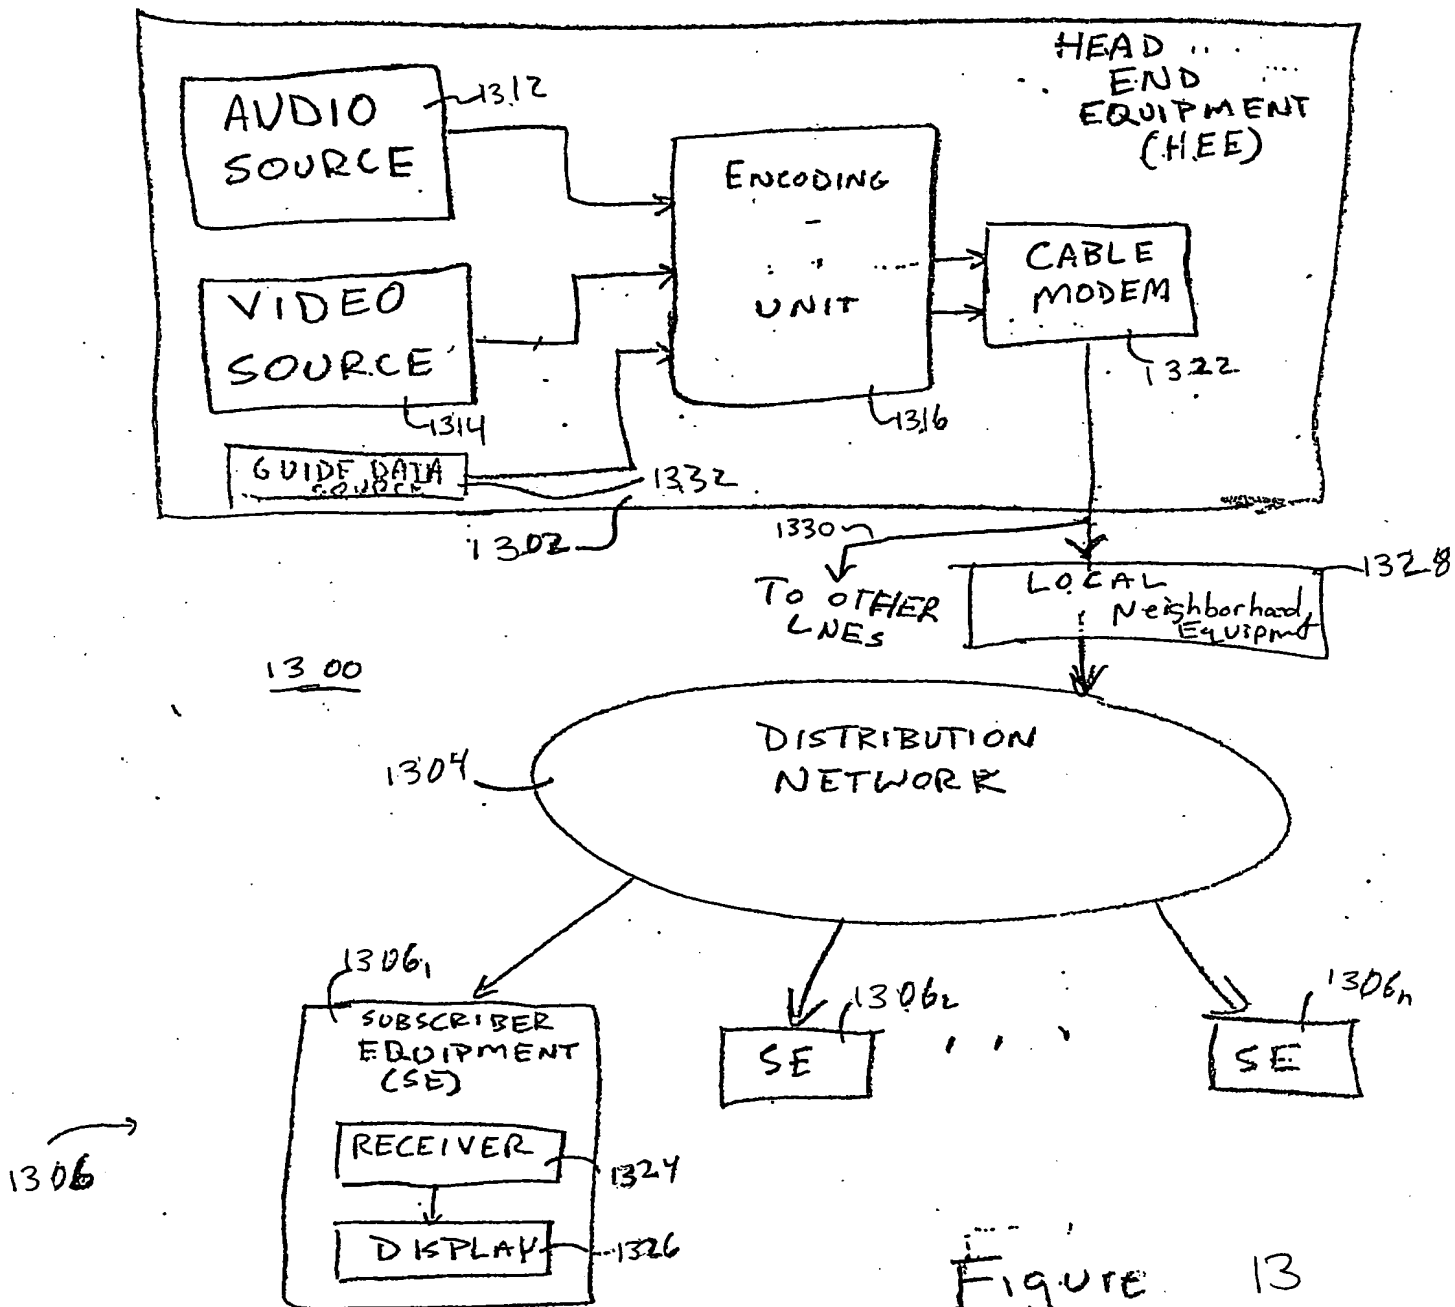 HEAD
END
EQUIPMENT
(HEE)
AUDIO
SOURCE
1312
ENCODING
UNIT
1316
CABLE
MODEM
1322
VIDEO
SOURCE
1314
GUIDE DATA
SOURCE
1332
1302
1330
TO OTHER
LNES
LOCAL
Neighborhood
Equipmt
1328
1300
DISTRIBUTION
NETWORK
1304
1306₁
SUBSCRIBER
EQUIPMENT
(SE)
RECEIVER
1324
DISPLAY
1326
1306
SE
1306₂
SE
1306n
Figure 13